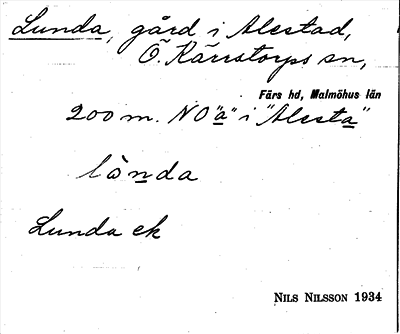 Lunda, gård i Alestad,
Ö. Kärrstorps sn,
Färs hd, Malmöhus län
200 m. NO "a" i "Alesta"
lònda
Lunda ek
NILS NILSSON 1934